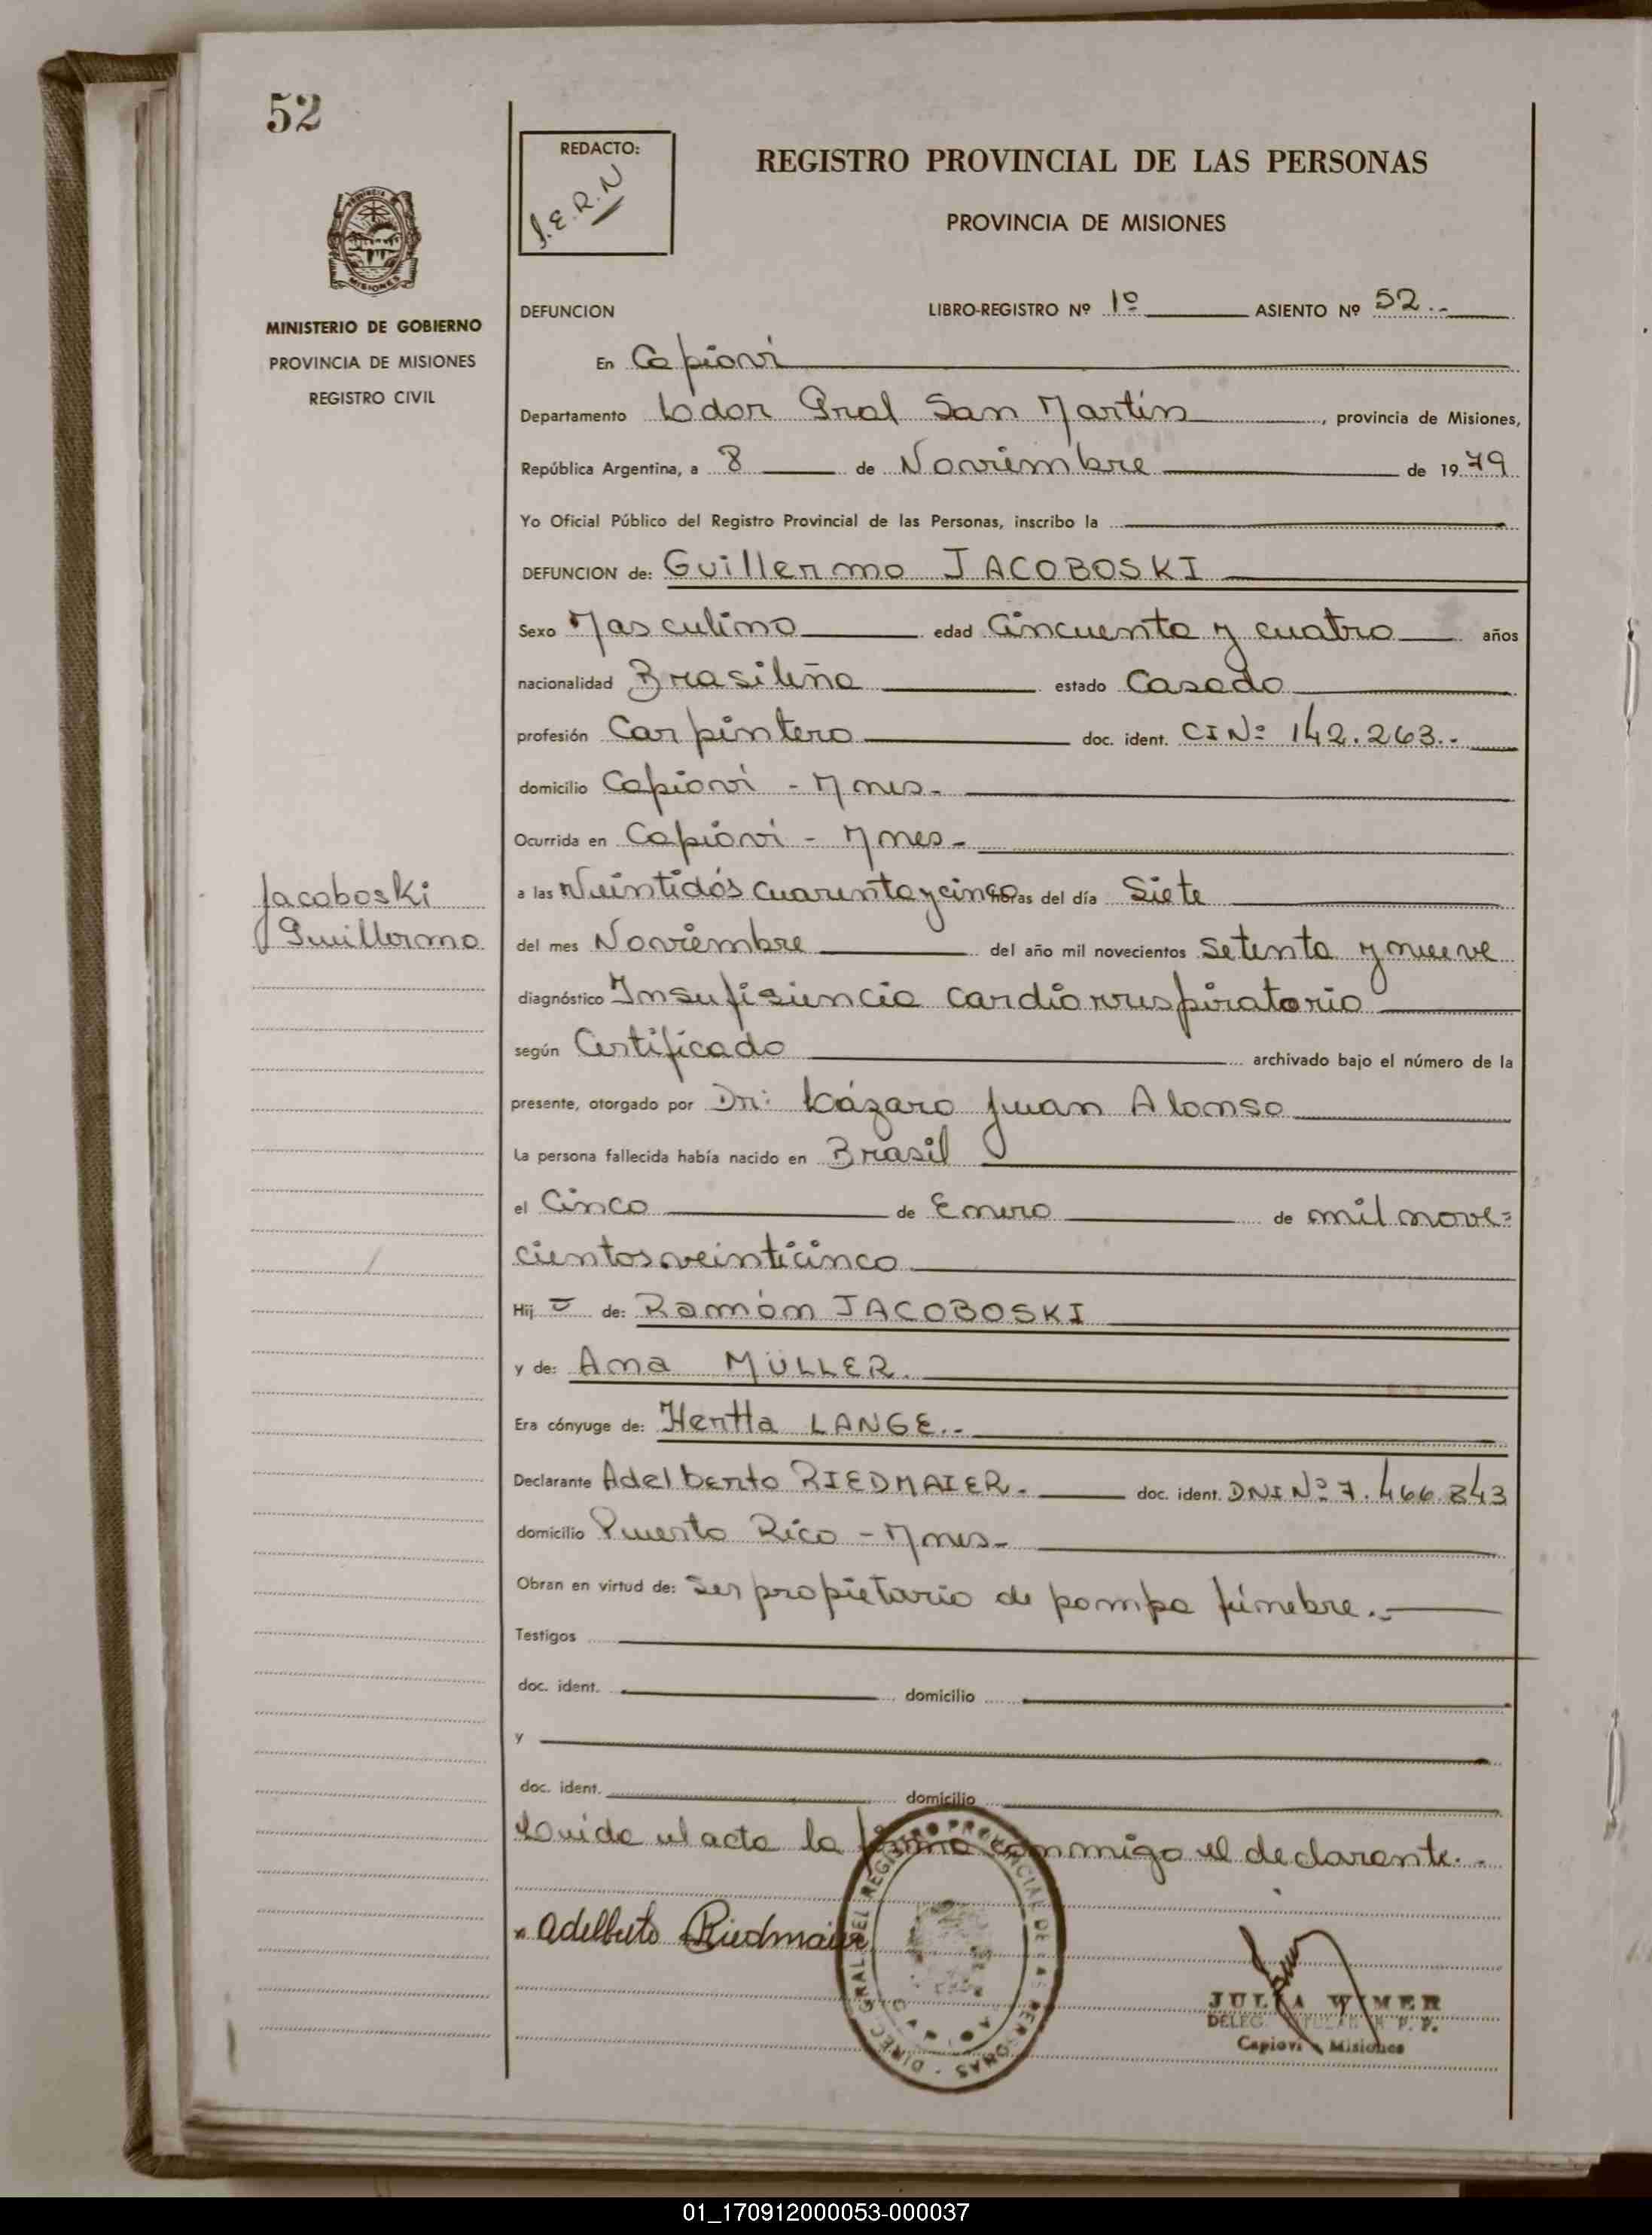 52
REDACTO:
J.E.R.N
REGISTRO PROVINCIAL DE LAS PERSONAS
PROVINCIA DE MISIONES
MISIONES
MINISTERIO DE GOBIERNO
PROVINCIA DE MISIONES
REGISTRO CIVIL
DEFUNCION LIBRO-REGISTRO Nº 1º ASIENTO Nº 52.-
En Capioví
Departamento Ldor Gral San Martín, provincia de Misiones,
República Argentina, a 8 de Noviembre de 1979
Yo Oficial Público del Registro Provincial de las Personas, inscribo la
DEFUNCION de: Guillermo JACOBOSKI
Sexo Masculino edad Cincuenta y cuatro años
nacionalidad Brasileña estado Casado
profesión Carpintero doc. ident. CI Nº 142.263.-
domicilio Capioví - Mnes.
Ocurrida en Capioví - Mnes.
Jacoboski
Guillermo
a las Veintidós cuarenta y cinco horas del día Siete
del mes Noviembre del año mil novecientos Setenta y nueve
diagnóstico Insufisiencia cardiorrespiratoria
según Certificado archivado bajo el número de la
presente, otorgado por Dr: Lázaro Juan Alonso
La persona fallecida había nacido en Brasil
el Cinco de Enero de mil nove=
cientos veinticinco
Hij o de: Ramón JACOBOSKI
y de: Ana MÜLLER.
Era cónyuge de: Hertta LANGE.-
Declarante Adelberto RIEDMAIER. doc. ident. DNI Nº 7.466.843
domicilio Puerto Rico - Mnes.
Obran en virtud de: Ser propietario de pompa fúnebre.-
Testigos
doc. ident. domicilio
y
doc. ident. domicilio
Leída el acta la firma conmigo el declarante.-
Adelberto Riedmaier
DIREC. GRAL. DEL REGISTRO PROVINCIAL DE LAS PERSONAS
JULIA WIMER
DELEG.
Capiovi Misiones
01_170912000053-000037